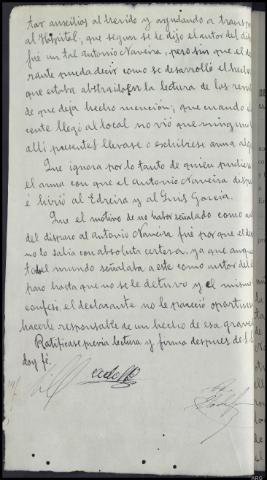 tar auxilios al herido y ayudando a transpor
al Hospital, que segun se le dijo el autor del dis
fué un tal Antonio Naveira, pero sin que el de
rante pueda decir como se desarrolló el hecho
que estaba abstraido en la lectura de las revis
de que deja hecho mención; que cuando el
cente llegó al local no vió que ninguno
alli presentes llevase o exhibiese arma alg
Que ignora por lo tanto de quien pudiera
el arma con que el Antonio Naveira disp
é hirió al Edreira y al Luis Garcia.
Que el motivo de no haber señalado como au
del disparo al Antonio Naveira fué por que el de
no lo sabia con absoluta certeza, ya que aunque
todo el mundo señalaba a este como autor del d
paro hasta que no se le detuvo y el mismo
confesó, el declarante no le pareció oportuno
hacerle responsable de un hecho de esa grave
Ratificase previa lectura y firma despues de S.S.
doy fé.